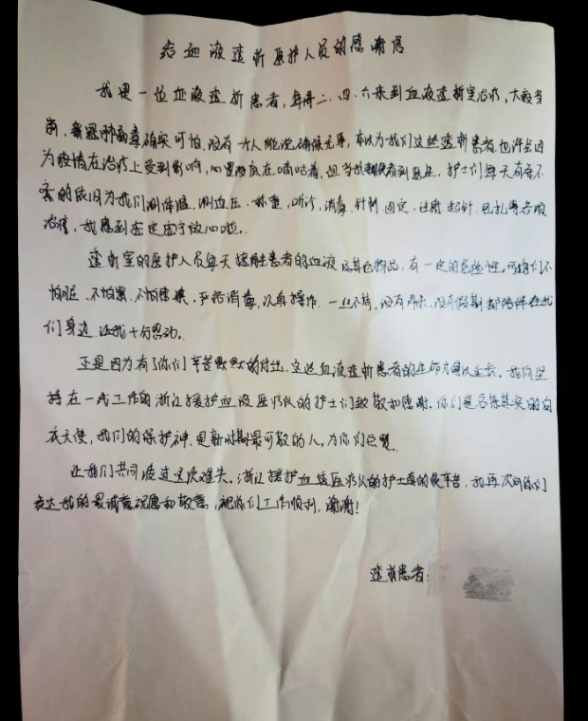 给血液透析医护人员的感谢信
我是一位血液透析患者,每周二、四、六来到血液透析室治疗,大疫当
前,新冠肺病毒确实可怕,没有一个人能说确保无事,所以为我们这些透析患者,也许会因
为疫情在治疗上受到影响,心里都在嘀咕着,但当我看到医生,护士们每天有条不
紊的依旧为我们测体温,测血压、称重,听诊,消毒,针刺 固定、注射 起针,包扎等各项
治疗,我感到安定 放心啦。
透析室的医护人员每天接触患者的血液及其它物品,有一定的危险性,可你们不
怕脏、不怕累、不怕感染,严格消毒,认真操作,一丝不苟,没有 没有假期都陪伴在我
们身边,让我十分感动。
正是因为有了你们辛苦默默的付出,才使血液透析患者的生命才得以延长,我向坚
持在一线工作的浙江援护血液医疗队的护士们致敬和感谢,你们是名符其实的白
衣天使,我们的保护神,是新时期最可敬的人,为你们点赞。
让我们共同渡过这次难关,浙江援护血透医疗队的护士真的很辛苦,我再次向你们
表达我的最诚意祝愿和敬意,祝你们工作顺利,谢谢!
透析患者: